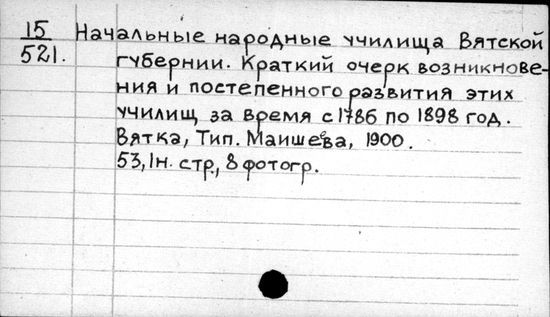 15 Начальные народные училища Вятской
521. губернии. Краткий очерк возникнове-
ния и постепенного развития этих
училищ за время с 1786 по 1898 год.
Вятка, Тип. Маишеева, 1900.
53, 1н. стр., 8 фотогр.